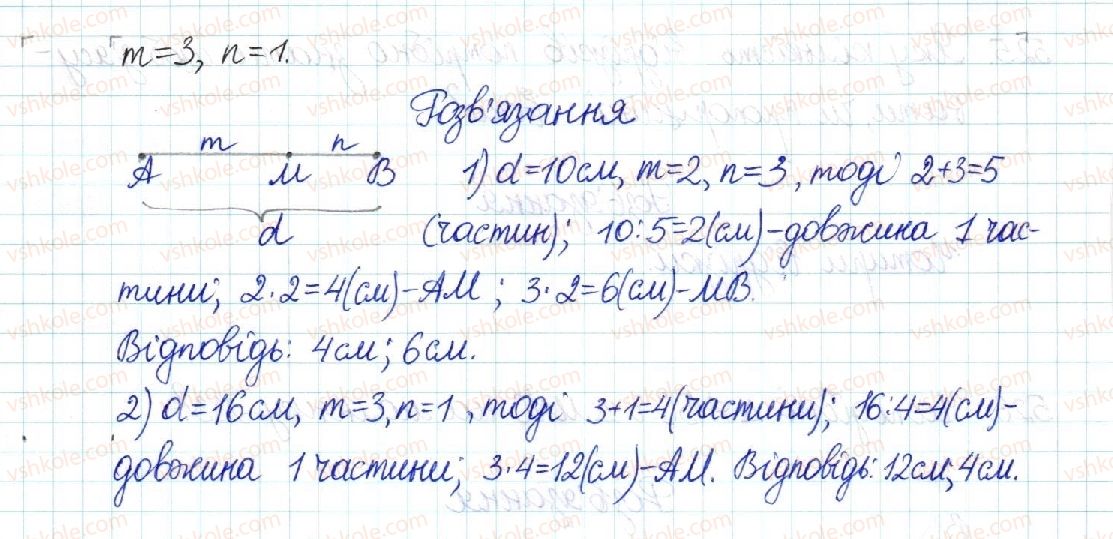 m=3, n=1.
Розв'язання
m n
A M B 1) d=10см, m=2, n=3, тоді 2+3=5
d (частин); 10:5=2(см)-довжина 1 час-
тини; 2·2=4(см)-AM; 3·2=6(см)-MB.
Відповідь: 4см; 6см.
2) d=16см, m=3, n=1, тоді 3+1=4(частини); 16:4=4(см)-
довжина 1 частини; 3·4=12(см)-AM. Відповідь: 12см, 4см.
vshkole.com